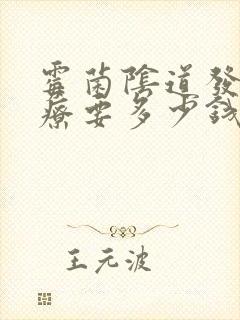 霉菌陰道發
療要多少錢
王元波